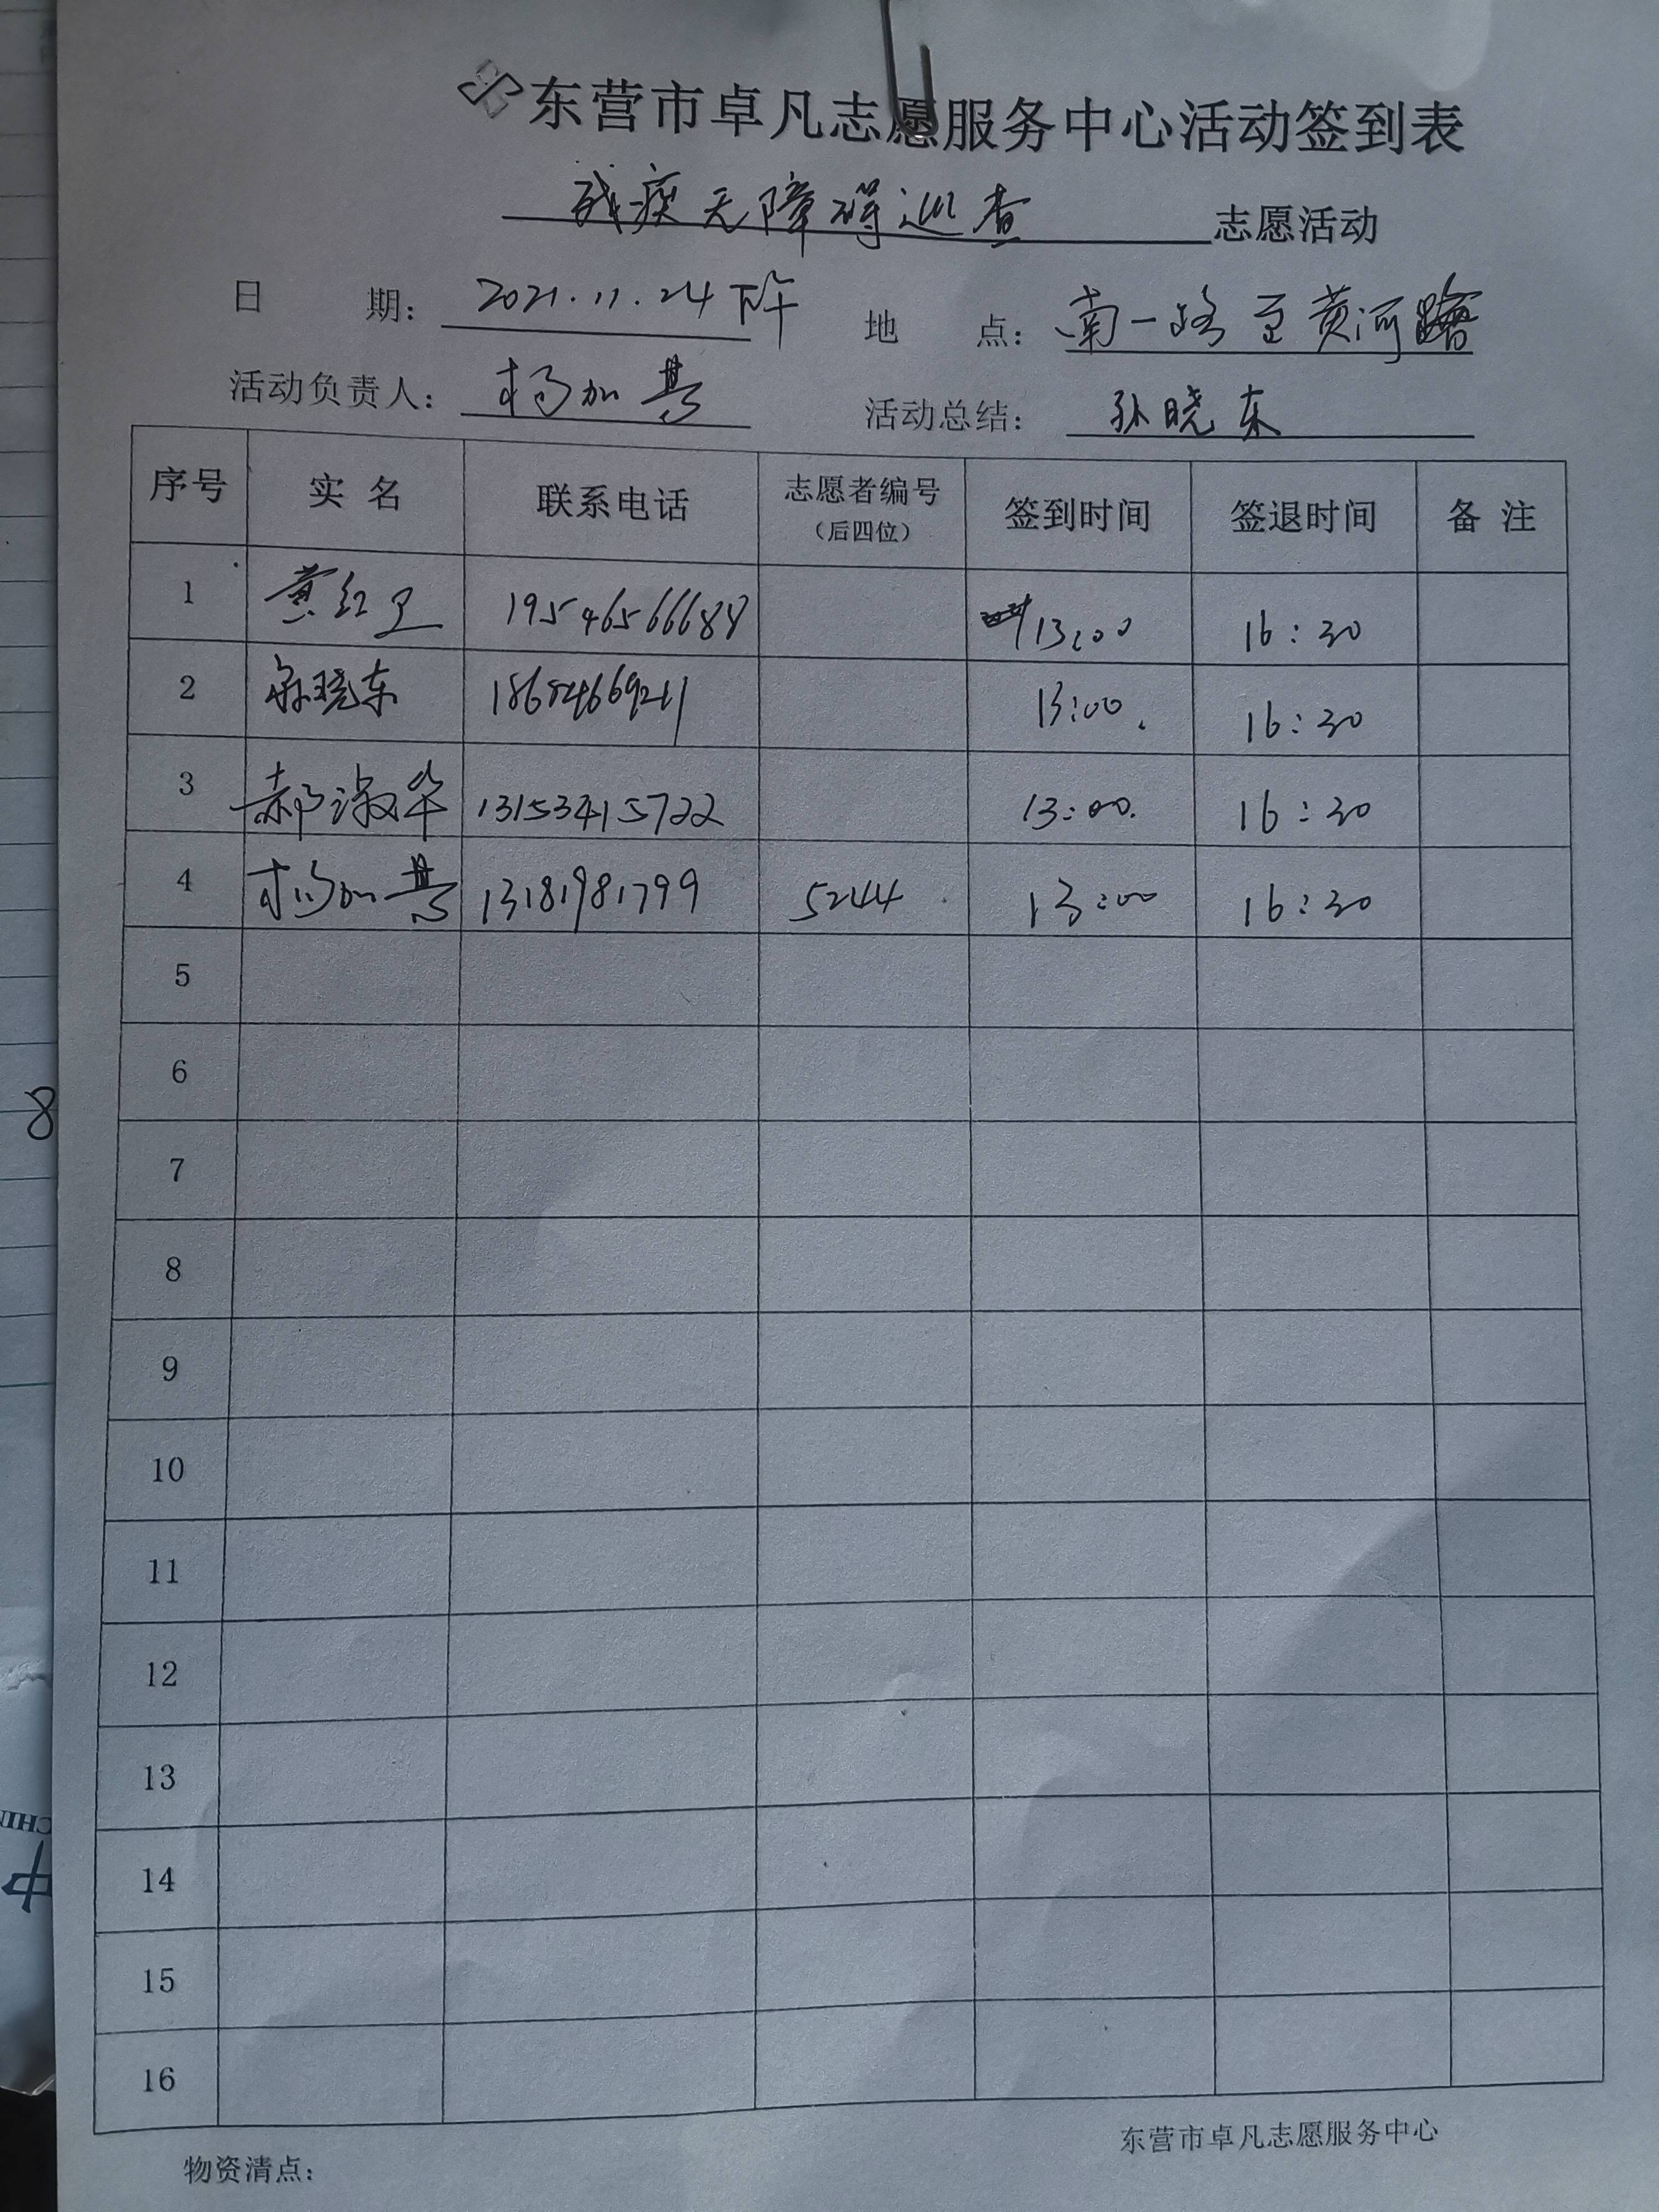 东营市卓凡志愿服务中心活动签到表
残疾无障碍巡查 志愿活动
日 期: 2021.11.24 下午 地 点: 南一路至黄河路
活动负责人: 杨加基 活动总结: 孙晓东
序号 实 名 联系电话 志愿者编号 (后四位) 签到时间 签退时间 备 注
1 黄红卫 19546566688 13:00 16:30
2 孙晓东 13:00 16:30
3 郝淑华 13153415722 13:00 16:30
4 杨加基 13181981799 5244 13:00 16:30
5
6
7
8
9
10
11
12
13
14
15
16
东营市卓凡志愿服务中心
物资清点:
8
CHI
中